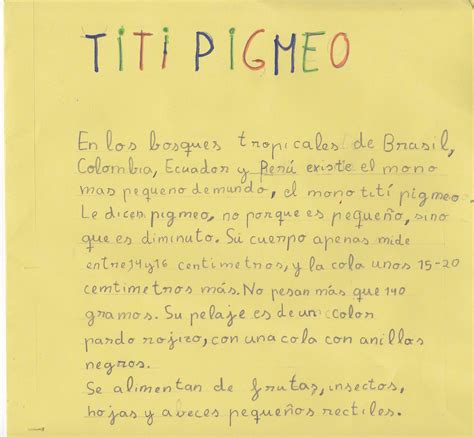 TITI PIGMEO
En los bosques tropicales de Brasil,
Colombia, Ecuador y Perú existe el mono
mas pequeno demundo, el mono tití pigmeo.
Le dicen pigmeo, no porque es pequeño, sino
que es diminuto. Su cuerpo apenas mide
entre 14 y 16 centimetros, y la cola unos 15-20
cemtimetros más. No pesan más que 140
gramos. Su pelaje es de un color
pardo rojizo, con una cola con anillos
negros.
Se alimentan de frutas, insectos,
hojas y aveces pequeños rectiles.